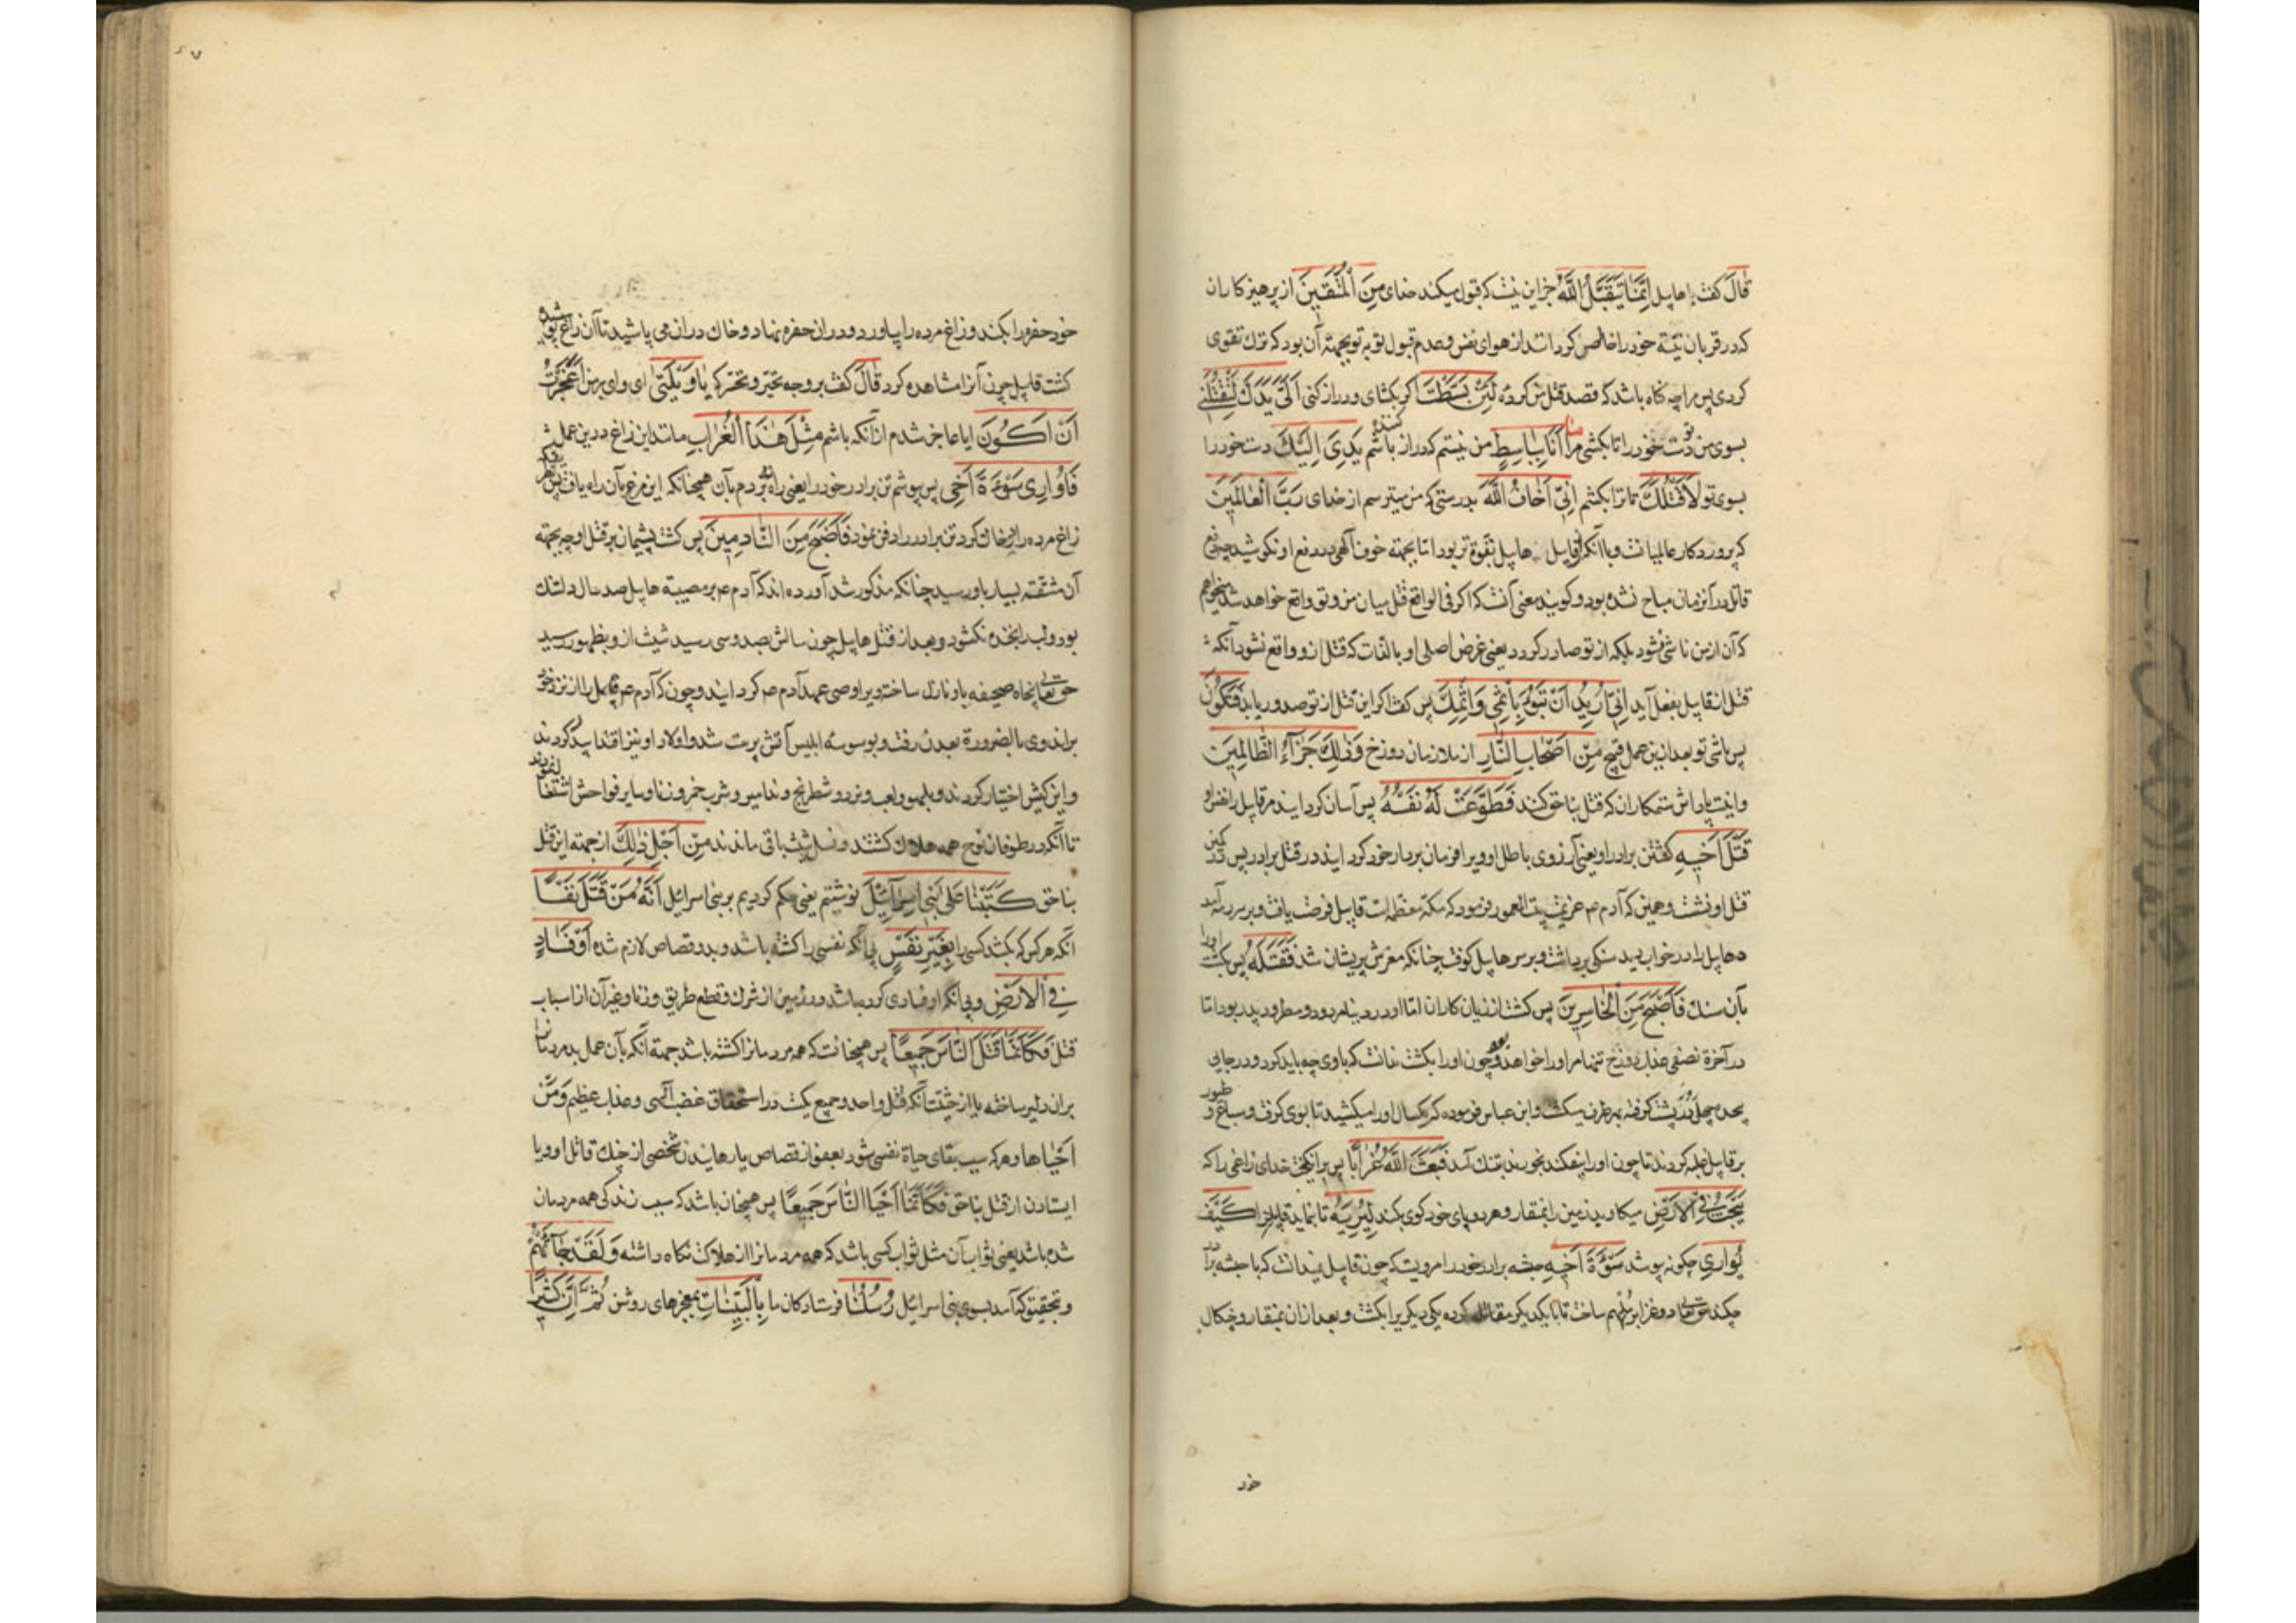 قَالَ كفت هابيل اِنَّمَا يَتَقَبَّلُ اللّٰهُ جز اين نيست كه قبول ميكند خداى مِنَ الْمُتَّقِينَ از پرهيز كاران
كه در قربان نيّة خود را خالص كرده‌اند از هواى نفس و عدم قبول توبه تو بجهة آن بود كه ترك تقوى
كردى پس مرا چه كناه باشد كه قصد قتل من كرده لَئِنْ بَسَطْتَ اكر بكشاى و دراز كنى اِلَىَّ يَدَكَ لِتَقْتُلَنِى
بسوى من تو دست خود را تا بكشى مرا مَا اَنَا بِبَاسِطٍ من نيستم كه دراز كننده باشم يَدِىَ اِلَيْكَ دست خود را
بسوى تو لِاَقْتُلَكَ تا ترا بكشم اِنِّى اَخَافُ اللّٰهَ بدرستى كه من ميترسم از خداى رَبَّ الْعَالَمِينَ
كه پروردكار عالميانست و با آنكه از قابيل هابيل بقوة تر بود امّا بجهة خوف آلهى در دفع او نكوشيد چه دفع
قاتل در آنزمان مباح نشده بود و كويند معنى آنست كه اكر فى الواقع قتل ميان من و تو واقع خواهد شد ميخواهم
كه آن از من ناشى نشود بلكه از تو صادر كردد يعنى غرض اصلى او بالذات كه قتل ازو واقع نشود نه آنكه
قتل از قابيل بفعل آيد اِنِّى اُرِيدُ اَنْ تَبُوءَ بِاِثْمِى وَاِثْمِكَ پس كفت اكر اين قتل از تو صدور يابد فَتَكُونَ
پس باشى تو بعد از ين عمل قبيح مِنْ اَصْحَابِ النَّارِ از ملازمان دوزخ وَذٰلِكَ جَزَآءُ الظَّالِمِينَ
و اينست پاداش ستمكاران كه قتل بناحق كنند فَطَوَّعَتْ لَهُ نَفْسُهُ پس آسان كردانيد مر قابيل را نفس او
قَتْلَ اَخِيهِ كشتن برادر او يعنى آرزوى باطل او ويرا فرمان بردار خود كردانيد در قتل برادر پس در كمين
قتل او نشست و حين كه آدم عم عزيمت بيت المعمور فرمود كه مكّه معظمه است قابيل فرصت يافت و بر سر رمه آمد
و هابيل را در خواب ديد سنكى برداشت و بر سر هابيل كوفت چنانكه مغزش پريشان شد فَقَتَلَهُ پس بكشت او را
بآن سنك فَاَصْبَحَ مِنَ الْخَاسِرِينَ پس كشت از زيان كاران امّا در دنيا مردود و مطرود پدر بود امّا
در آخرة نصفى عذاب دوزخ تنها مر او را خواهد بود و چون او را بكشت ندانست كه با وى چه بايد كرد و در جايى
بر پشت كرفته بهر طرف ميكشت و ابن عباس فرموده كه يكسال او را ميكشيد تا بوى كرفت و سباع و طيور
بر قابيل غلبه كردند تا چون او را بيفكند بخورند بتنك آمد فَبَعَثَ اللّٰهُ غُرَابًا پس برانكيخت خداى زاغى را كه
يَبْحَثُ فِى الْاَرْضِ ميكاويد زمين را بمنقار و هر دو پاى خود كوى بكند لِيُرِيَهُ تا بنمايد قابيل را كَيْفَ
يُوَارِى چكونه پوشد سَوْءَةَ اَخِيهِ جثه برادر خود را مرويست كه چون قابيل نميدانست كه با جثه برادر
چكند حق تعالى دو غراب را ملهم ساخت تا با يكديكر مقاتله كرده يكى ديكريرا بكشت و بعد از ان بمنقار و چنكال
خود
خود حفره را بكند و زاغ مرده را بياورد و در ان حفره نهاد و خاك در ان مى پاشيد تا آن زاغ پوشيده
كشت قابيل چون آنرا مشاهده كرد قَالَ كفت بر وجه تحيّر و تحسّر كه يَا وَيْلَتٰى اى واى بر من اَعَجَزْتُ
اَنْ اَكُونَ ايا عاجز شدم از آنكه باشم مِثْلَ هٰذَا الْغُرَابِ مانند اين زاغ در ين عمل
فَاُوَارِىَ سَوْءَةَ اَخِى پس بپوشم تن برادر خود را يعنى راه نبردم بآن همچنانكه اين مرغ بآن راه يافت پس
زاغ مرده را از خاك كرد تن برادر را دفن نمود فَاَصْبَحَ مِنَ النَّادِمِينَ پس كشت پشيمان بر قتل او چه بجهة
آن مشقّت بسيار باو رسيد چنانكه مذكور شد آورده اند كه آدم عم بر مصيبة هابيل صد سال دلتنك
بود و لب را بخنده نكشود و بعد از قتل هابيل چون سالش بصد و سى رسيد شيث ازو بظهور رسيد
حق تعالى پنجاه صحيفه باو نازل ساخته و يرا وصى عهد آدم عم كردانيد و چون كه آدم عم قابيل را از نزد خود
براند وى بالضرورة بعدن رفت و بوسوسهٔ ابليس آتش پرست شد و اولاد او نيز اقتدا بدو كردند
و اين كيش اختيار كردند و بلهو و لعب و نرد و شطرنج و مزامير و شرب خمر و زنا و ساير فواحش اشتغال نمودند
تا آنكه در طوفان نوح همه هلاك كشتند و نسل شيث باقى ماندند مِنْ اَجْلِ ذٰلِكَ از جهة اين قتل
بناحق كَتَبْنَا عَلٰى بَنِى اِسْرَآئِيلَ نوشتيم يعنى حكم كرديم بر بنى اسرائيل اَنَّهُ مَنْ قَتَلَ نَفْسًا
آنكه هر كس كه بكشد كسى را بِغَيْرِ نَفْسٍ بى آنكه نفسى را كشته باشد و بدو قصاص لازم شده اَوْ فَسَادٍ
فِى الْاَرْضِ و بى آنكه او فسادى كرده باشد در زمين از شرك و قطع طريق و زنا و غير آن از اسباب
قتل فَكَاَنَّمَا قَتَلَ النَّاسَ جَمِيعًا پس همچنانست كه همه مردمانرا كشته باشد جهة آنكه بآن عمل بد مردمانرا
بران دلير ساخته يا از حيثيت آنكه قتل واحد و جميع يكيست در استحقاق غضب آلهى و عذاب عظيم وَمَنْ
اَحْيَاهَا و هر كه سبب بقاى حياة نفسى شود بعفو از قصاص يا رهانيدن شخصى از چنك قاتل او و يا
ايستادن از قتل بناحق فَكَاَنَّمَا اَحْيَا النَّاسَ جَمِيعًا پس همچنان باشد كه سبب زندكى همه مردمان
شده باشد يعنى ثواب آن مثل ثواب كسى باشد كه همه مردمانرا از هلاكت نكاه داشته وَلَقَدْ جَآءَتْهُمْ
و بتحقيق كه آمد بسوى بنى اسرائيل رُسُلُنَا فرستادكان ما بِالْبَيِّنَاتِ بمعجزهاى روشن ثُمَّ اِنَّ كَثِيرًا